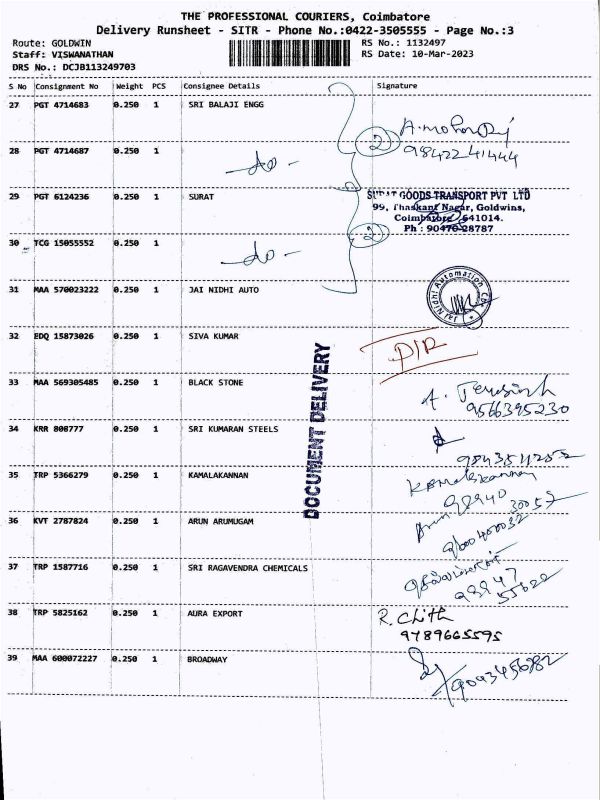 THE PROFESSIONAL COURIERS, Coimbatore
Delivery Runsheet - SITR - Phone No.:0422-3505555 - Page No.:3
Route: GOLDWIN
RS No.: 1132497
Staff: VISWANATHAN
RS Date: 10-Mar-2023
DRS No.: DCJB113249703
S No Consignment No Weight PCS Consignee Details Signature
27 PGT 4714683 0.250 1 SRI BALAJI ENGG
2
98422 41444
28 PGT 4714687 0.250 1 -do-
29 PGT 6124236 0.250 1 SURAT
GOODS TRANSPORT PVT LTD
99, Thaskant Nagar, Goldwins,
Coimbatore 641014.
Ph : 90470 28787
2
30 TCG 15055552 0.250 1 -do-
31 MAA 570023222 0.250 1 JAI NIDHI AUTO
Jai Nidhi Automation
32 EDQ 15873026 0.250 1 SIVA KUMAR
D/R
33 MAA 569305485 0.250 1 BLACK STONE
9566395230
DOCUMENT DELIVERY
34 KRR 808777 0.250 1 SRI KUMARAN STEELS
35 TRP 5366279 0.250 1 KAMALAKANNAN
Kamalakannan
98940
30057
36 KVT 2787824 0.250 1 ARUN ARUMUGAM
Arun
37 TRP 1587716 0.250 1 SRI RAGAVENDRA CHEMICALS
98947
55622
38 TRP 5825162 0.250 1 AURA EXPORT
R. Chith
9789665595
39 MAA 600072227 0.250 1 BROADWAY